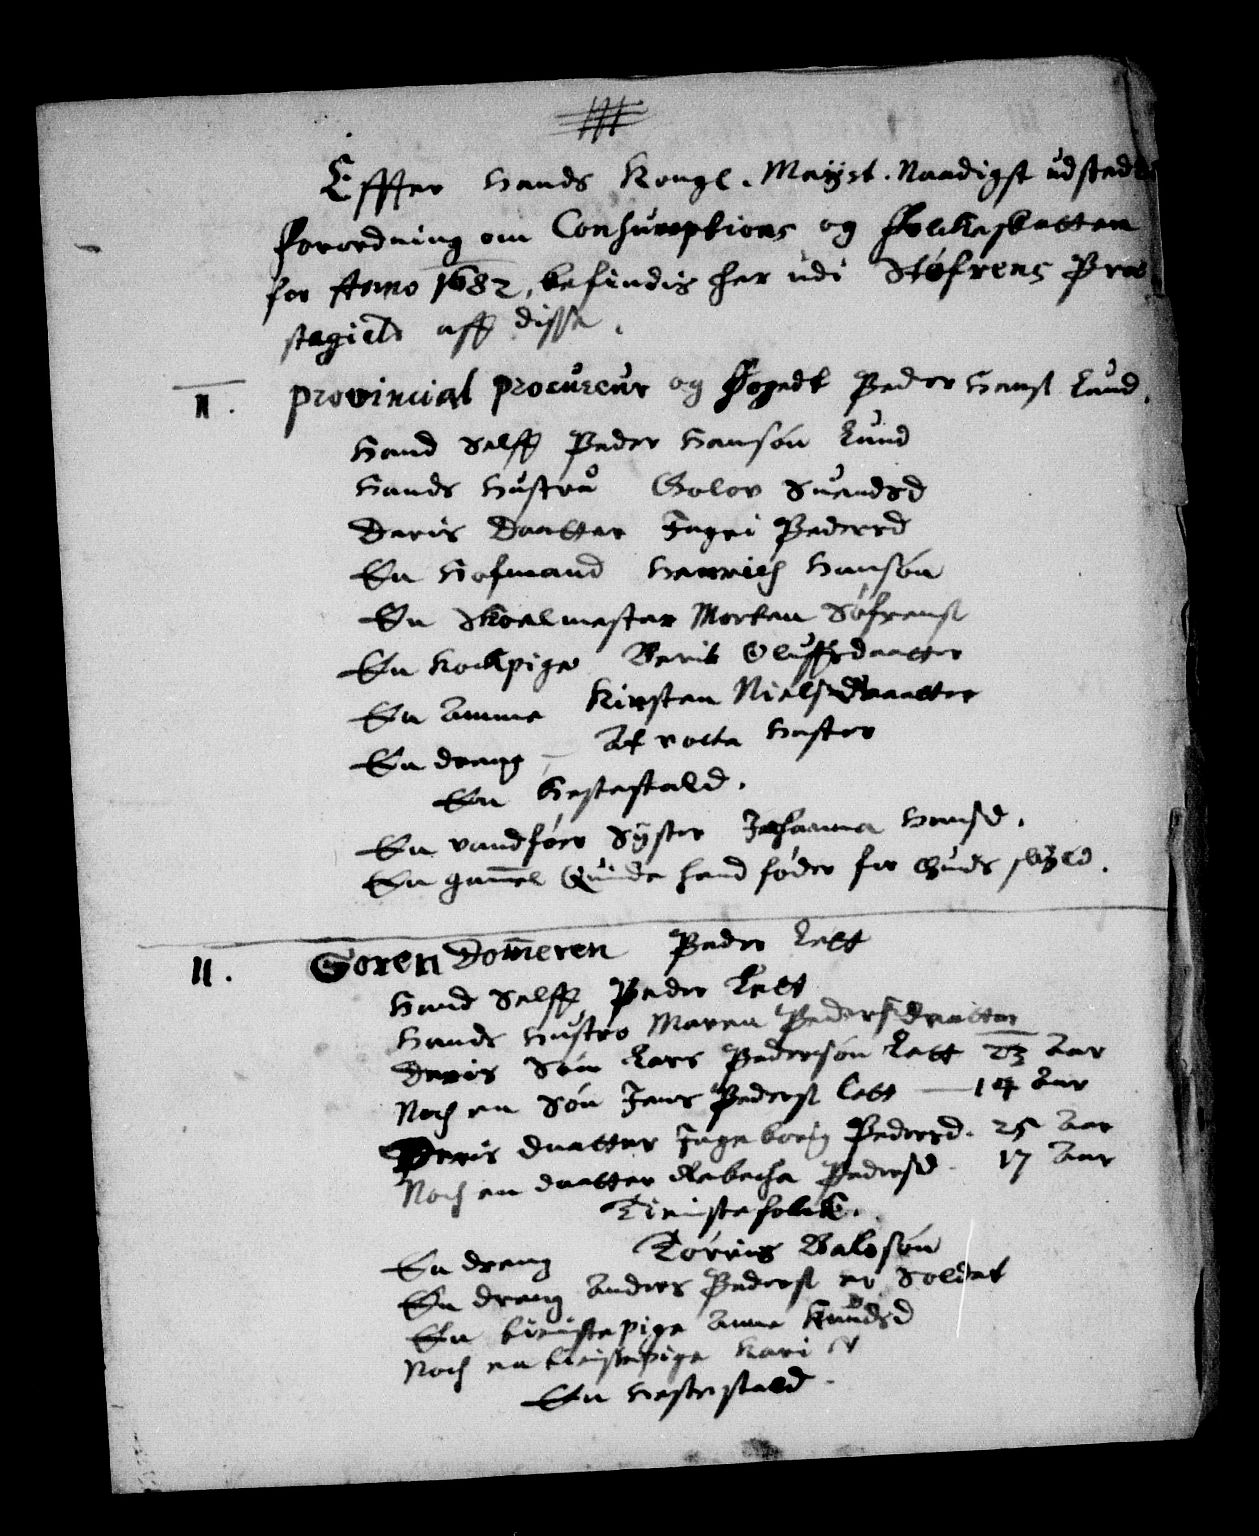 Efffter Hands Kongl. Mayst. Naadigst udstedte
forordning om Consumptions og Folkeskatten
for Anno 1682, befindis her udi Støfrens Præ
stegield aff disse.
I. Provincial Procureur og Fogedt Peder Hansl Lund.
Hand Selff Peder Hansøn Lund
Hands Hustru Golov Suendsd
Deris Daatter Ingri Pedersd
En Hofmand Henrich Hansøn
En Skoelmester Morten Søfrensl
En Kockpige Berit Oluffsdaatter
En Amme Kirsten Nielsdaatter
En dreng — At røcte Hester
En Hestestald.
En vandføer Syster Johanna Hansd.
En gammel Quinde hand føder for Guds skyld.
II. Soren Domeren Peder Lett
Hand Selff Peder Lett
Hands Hustro Maren Pedersdaatter
Deris Søn Lars Pedersøn Lett 23 Aar
Noch en Søn Jens Pedersl Lett — 14 Aar
Deris daatter Ingeborig Pedersd. 25 Aar
Noch en daatter Rebecha Pedersd. 17 Aar
Tienistefolck.
En dreng Tørris Balsøn
En dreng Anders Pedersl er Soldat
En tienistepige Anne Knudsd
Noch en tienistepige Kari
En Hestestald.